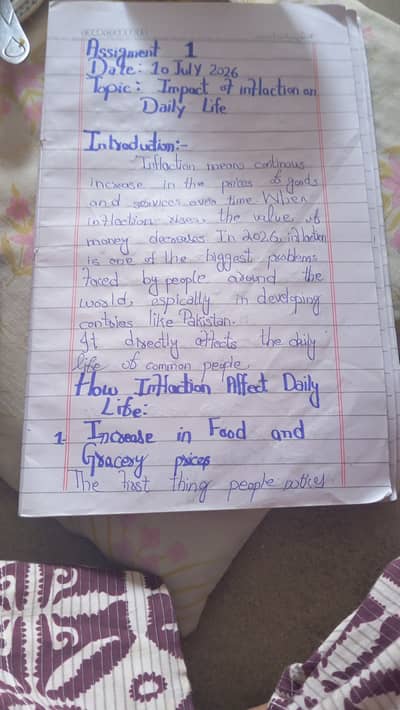 Assigment 1
Date: 10 July 2026
Topic: Impact of inflaction on
Daily Life
Introduction:-
Inflaction means continous
increase in the prices of goods
and services over time When
inflaction rises the value of
money decreases In 2026, inflaction
is one of the biggest problems
faced by people around the
world, aspically in developing
contries like Pakistan.
It directly affects the daily
life of common people.
How Inflaction Affect Daily
Life:
1. Increase in Food and
Gracery prices
The first thing people notices